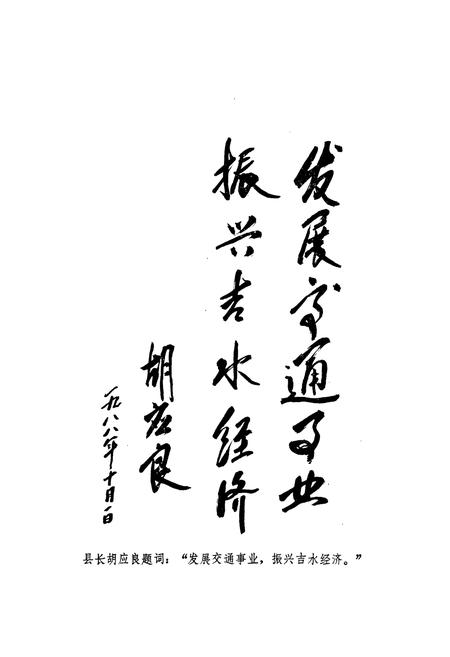 发展交通事业
振兴吉水经济
胡应良
一九八八年十月一日
县长胡应良题词：“发展交通事业，振兴吉水经济。”